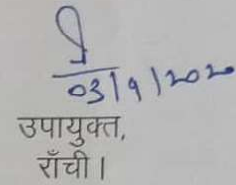 03/9/2020
उपायुक्त,
राँची।